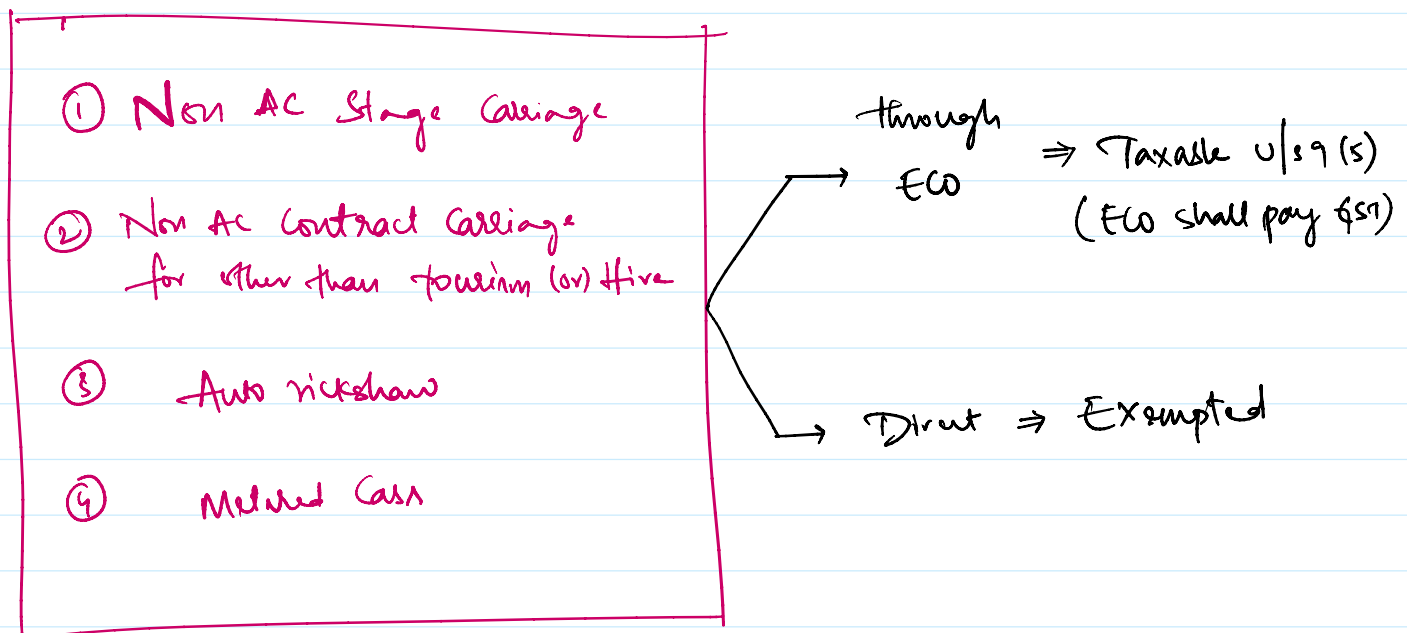 ① Non AC Stage Carriage
② Non AC Contract Carriage
for other than tourism (or) Hire
③ Auto rickshaw
④ Metered Cabs
through
ECO
⇒ Taxable u/s 9(5)
(ECO shall pay GST)
Direct ⇒ Exempted